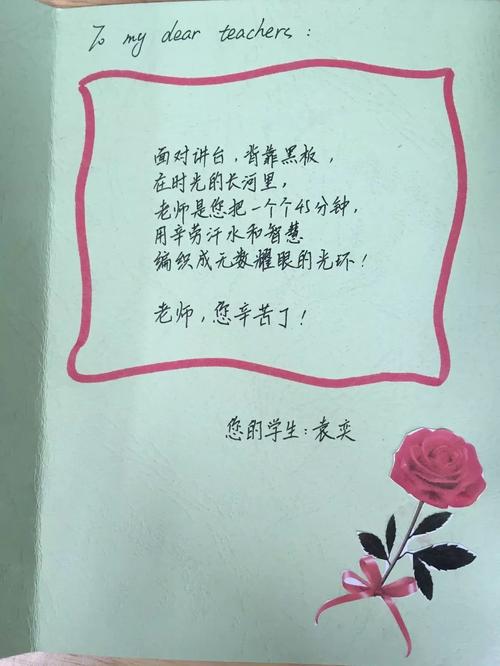 To my dear teachers:
面对讲台，背靠黑板，
在时光的长河里，
老师是您把一个个45分钟，
用辛劳汗水和智慧
编织成无数耀眼的光环！
老师，您辛苦了！
您的学生：袁奕